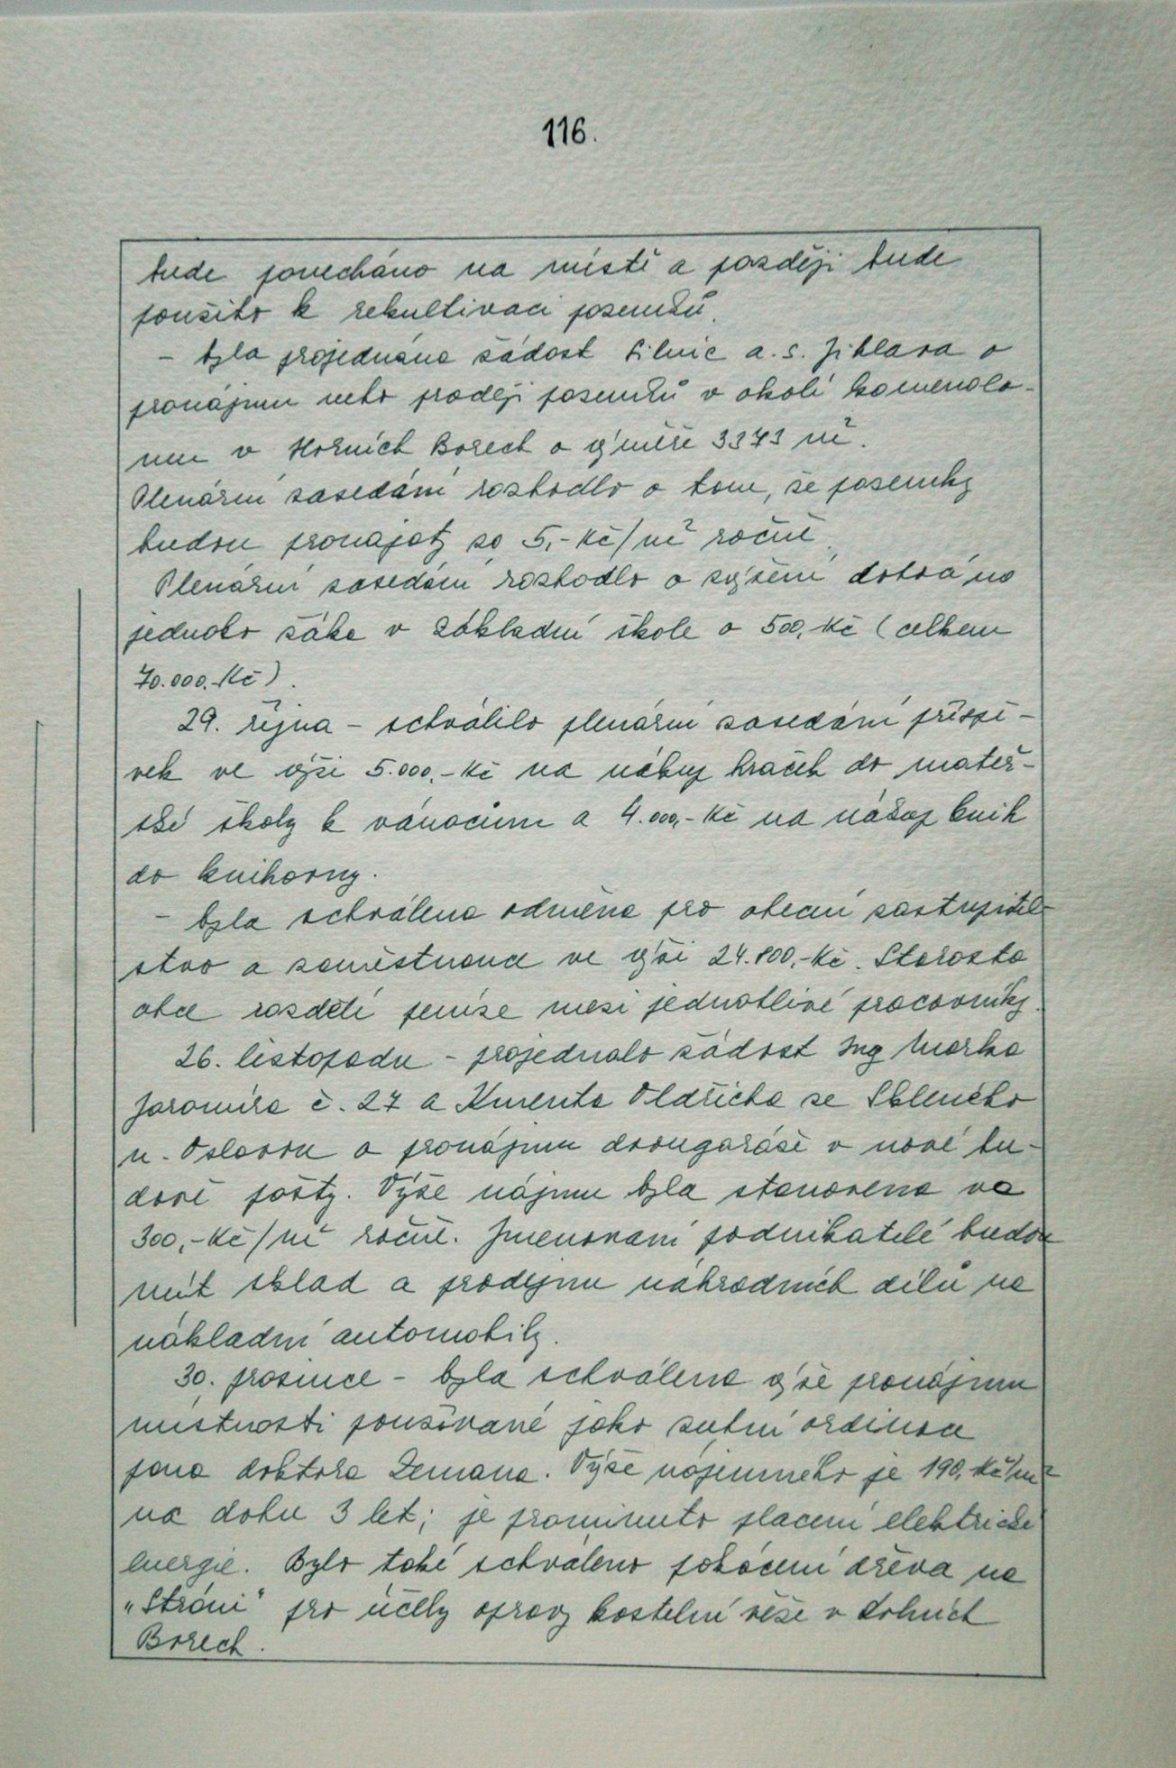 116.
bude ponecháno na místě a později bude
použito k rekultivaci pozemků.
- byla projednána žádost Silnic a.s. Jihlava o
pronájmu nebo prodeji pozemků v okolí kamenolo-
mu v Horních Borech o výměře 3373 m².
Plenární zasedání rozhodlo o tom, že pozemky
budou pronajaty za 5,-Kč/m² ročně.
Plenární zasedání rozhodlo o zvýšení dotová na
jednoho žáka v základní škole o 500,Kč (celkem
70.000.-Kč).
29. října - schválilo plenární zasedání příspě-
vek ve výši 5.000,-Kč na nákup hraček do mateř-
ské školy k vánocům a 4.000,-Kč na nákup knih
do knihovny.
- byla schválena odměna pro obecní zastupitel-
stvo a zaměstnance ve výši 24.800,-Kč. Starosta
obce rozdělí peníze mezi jednotlivé pracovníky.
26. listopadu - projednalo žádost Ing Marka
Jaromíra č. 27 a Kmenta Oldřicha ze Skleného
n. Oslavou o pronájmu dvougaráže v nové bu-
dově pošty. Výše nájmu byla stanovena na
300,-Kč/m² ročně. Jmenovaní podnikatelé budou
mít sklad a prodejnu náhradních dílů na
nákladní automobily.
30. prosince - byla schválena výše pronájmu
místnosti používané jako zubní ordinace
pana doktora Zemana. Výše nájemného je 190,Kč/m²
na dobu 3 let; je prominuto placení elektrické
energie. Bylo také schváleno pokácení dřeva na
"Stráni" pro účely opravy kostelní věže v Dolních
Borech.